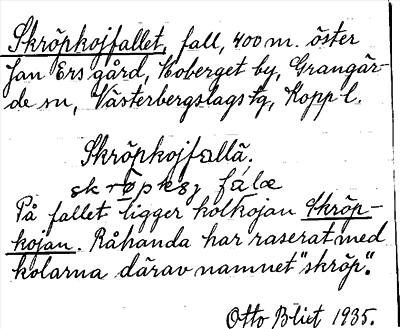 Skröpkojfallet, fall, 400 m. öster
Jan Ers gård, Hoberget by, Grangär-
de sn, Västerbergslags tg, Kopp l.
Skröpkojfallä.
På fallet ligger kolkojan Skröp-
kojan. Råhanda har raserat med
kolarna därav namnet "skröp".
Otto Blixt 1935.